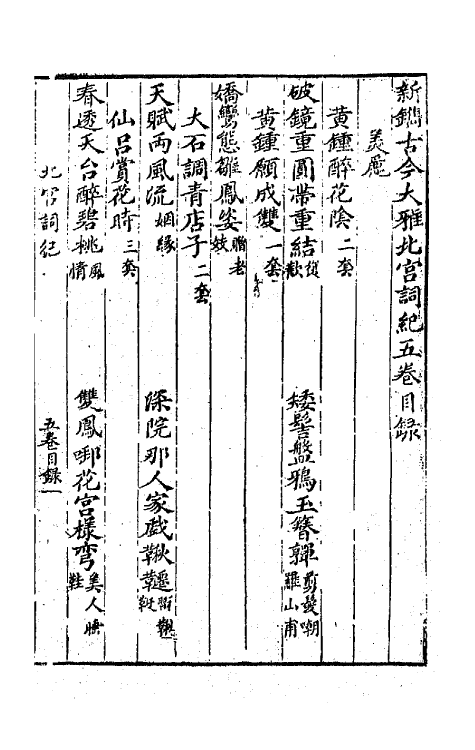 新鐫古今大雅北宮詞紀五卷目録
美麗
黄鍾醉花隂二套
破鏡重圓帶重結復歡
矮髻盤鴉玉簪嚲剪髮嘲羅山甫
黄鍾願成雙一套
嬌鸞態雛鳳姿贈老妓
大石調青店子二套
天賦兩風流姻緣
深院那人家戯鞦韆
仙吕賞花時三套
春透天台醉碧桃風情
雙鳳啣花宮様弯美人睡鞋
北宮詞紀
五卷目録一